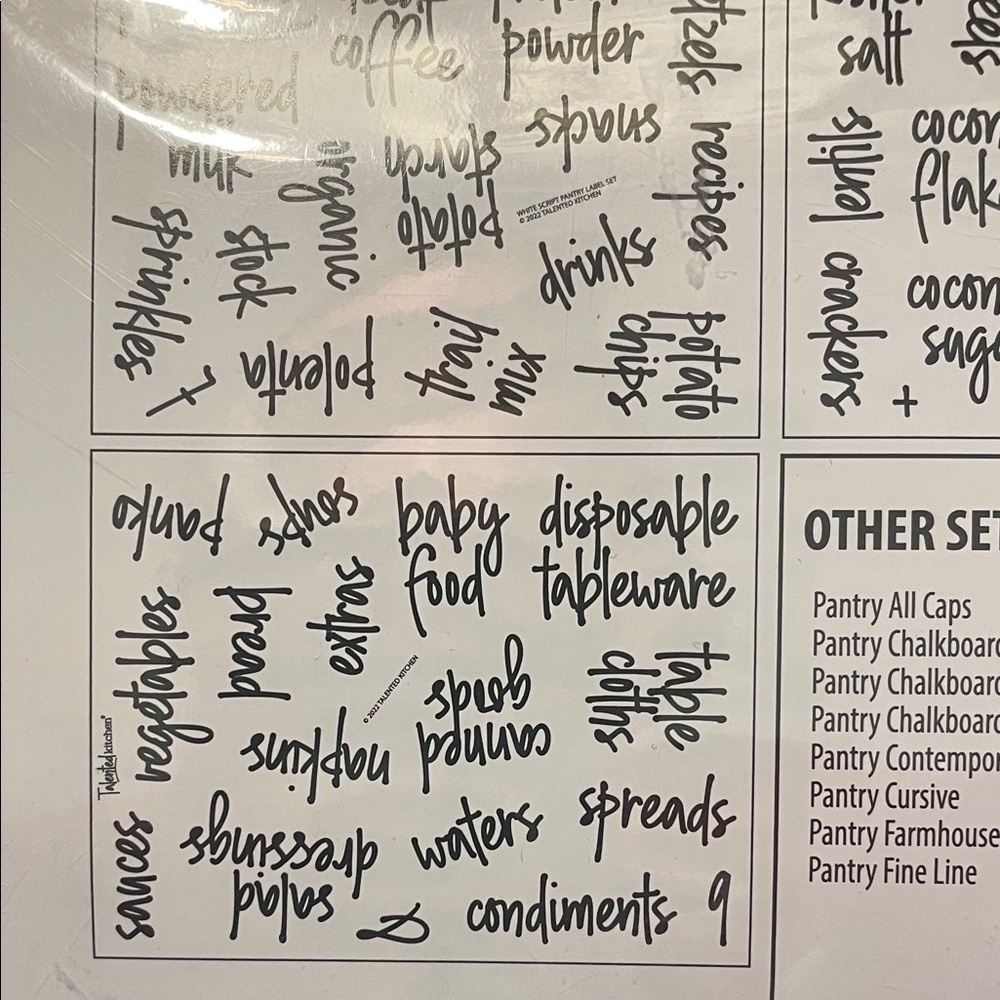 coffee
powder
powdered
milk
organic
potato
starch
snacks
recipes
WHITE SCRIPT PANTRY LABEL SET
© 2022 TALENTED KITCHEN
sprinkles
stock
drinks
7
polenta
hiery
mix
potato
chips
salt
slived
crackers
+
panko
soups
baby
food
disposable
tableware
vegetables
bread
extras
© 2022 TALENTED KITCHEN
canned
goods
table
cloths
Talented kitchen®
napkins
sauces
salad
dressings
waters
spreads
&
condiments
9
OTHER
Pantry All Caps
Pantry
Pantry
Pantry
Pantry
Pantry Cursive
Pantry Farmhouse
Pantry Fine Line